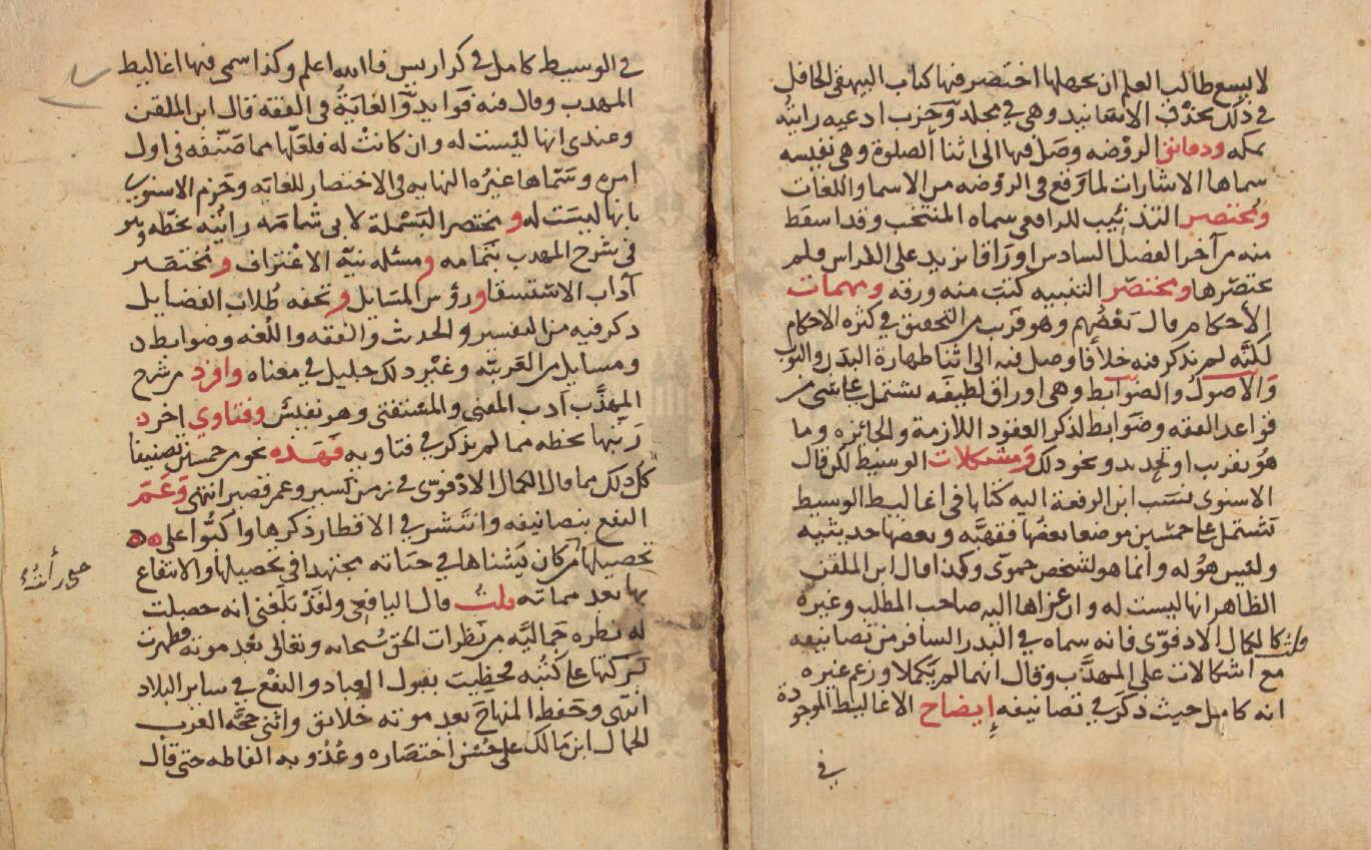 لا يسع طالب العلم ان يجهلها اختصر فيها كتاب البيهقي الحافل
في ذلك بحذف الاسانيد وهي في مجلد وحزب ادعيه رايته
بمكه ودقائق الروضه وصل فيها الى اثنا الصلوة وهي نفيسه
سماها الاشارات لما وقع في الروضه من الاسما واللغات
ومختصر التذنيب للرافعي سماه المنتخب وقد اسقط
منه من آخر الفصل السادس اوراقا تزيد على الكراس فلم
يختصرها ومختصر التنبيه كتب منه ورقه ومهمات
الأحكام قال بعضهم وهو قريب من التحقيق في كثره الاحكام
لكنه لم يذكر فيه خلافا وصل فيه الى اثنا طهارة البدن والثوب
والأصول والضوابط وهي اوراق لطيفه تشتمل على شي من
قواعد الفقه وضوابط لذكر العقود اللازمة والجائزه وما
هو تقريب او تحديد ونحو ذلك ومشكلات الوسيط لكن قال
الاسنوي نسب ابن الرفعة اليه كتابا في اغاليط الوسيط
تشتمل على خمسين موضعا بعضها فقهيه وبعضها حديثيه
وليس هو له وانما هو لشخص حموي وكذا قال ابن الملقن
الظاهر انها ليست له وان عزاها اليه صاحب المطلب وغيره
قلت كالكمال الادفوي فانه سماه في البدر السافر من تصانيفه
مع اشكالات على المهذب وقال انهما لم يكملا وزعم غيره
انه كامل حيث ذكر في تصانيفه إيضاح الاغاليط الموجودة
في
في الوسيط كامل في كراريس فالله اعلم وكذا سمى فيها اغاليط
المهذب وقال فيه فوايد والغاية في الفقه قال ابن الملقن
وعندي انها ليست له وان كانت له فلعلها مما صنفه في اول
امره وسماها غيره النهايه في الاختصار للغايه وجزم الاسنوي
بانها ليست له ومختصر البسملة لابي شامه رايته بخطه وهو
في شرح المهذب بتمامه ومسئله نية الاغتراف ومختصر
آداب الاستسقا ورؤس المسايل وتحفه طلاب الفضايل
ذكر فيه من التفسير والحديث والفقه واللغه وضوابط
ومسايل من العربيه وغير ذلك جليل في معناه وافرد من شرح
المهذب آدب المفتي والمستفتي وهو نفيس وفتاوي اخر
رتبها بخطه مما لم يذكر في فتاويه فهذه نحو من خمسين تصنيفا
كل ذلك مما قال الكمال الادفوي في زمن يسير وعمر قصير انتهى وعم
النفع بتصانيفه وانتشر في الاقطار ذكرها واكبوا على
تحصيلها من كان يشناها في حياته مجتهدا في تحصيلها والانتفاع
بها بعد مماته قلت قال اليافعي ولقد بلغني انه حصلت
له نظره جماليه من نظرات الحق سبحانه وتعالى بعد موته فظهرت
بركتها على كتبه فحظيت بقبول العباد والنفع في ساير البلاد
انتهى وحفظ المنهاج بعد موته خلائق واثنى حجه العرب
الجمال ابن مالك على حسن اختصاره وعذوبه الفاظه حتى قال